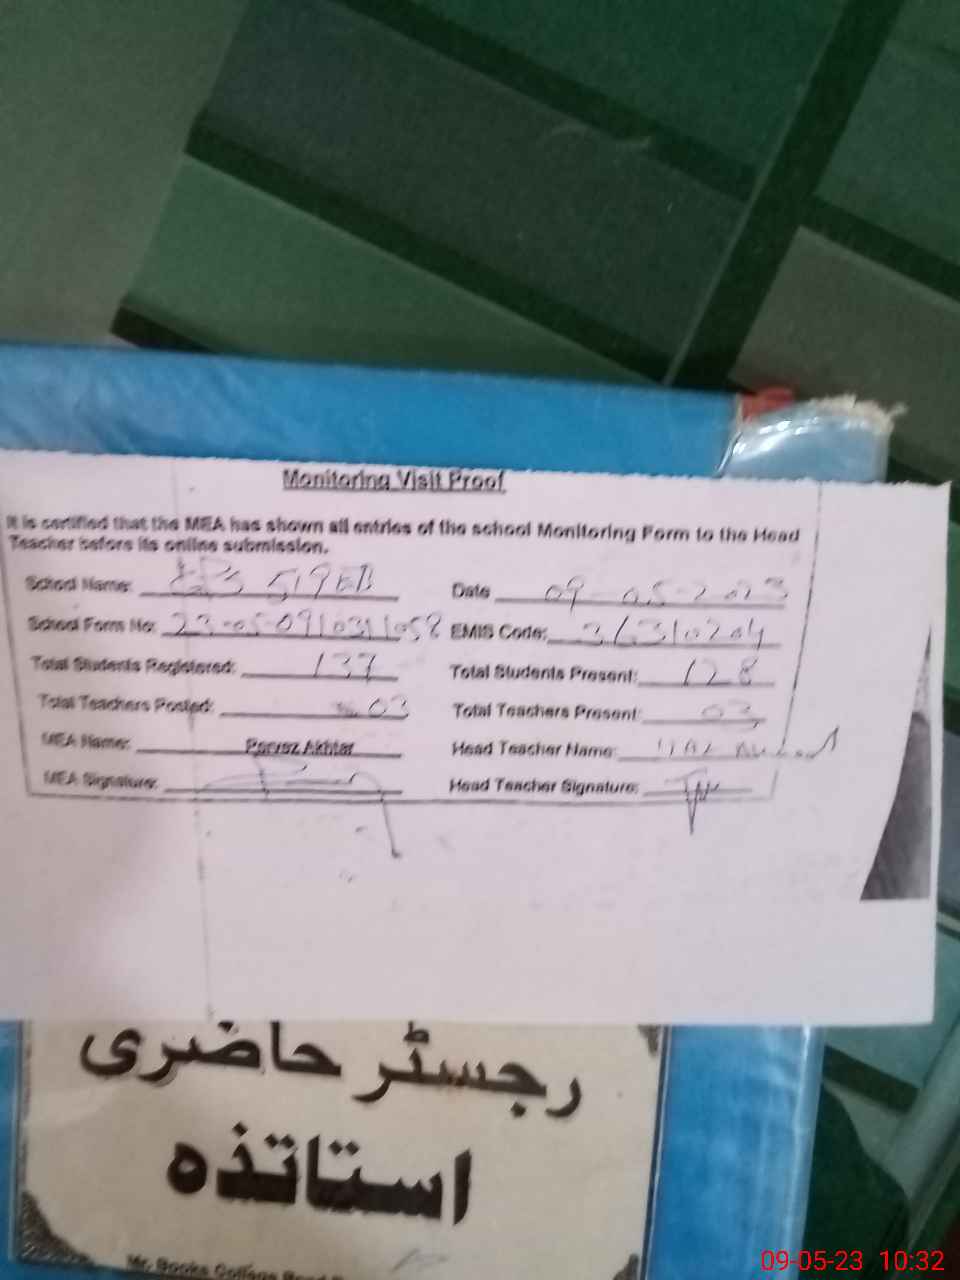 Monitoring Visit Proof
It is certified that the MEA has shown all entries of the school Monitoring Form to the Head
Teacher before its online submission.
School Name: 519EB Date 09-05-2023
School Form No: 23-05-0910311058 EMIS Code: 36310204
Total Students Registered: 137 Total Students Present: 128
Total Teachers Posted: 03 Total Teachers Present: 03
MEA Name: Parvez Akhtar Head Teacher Name:
MEA Signature: Head Teacher Signature:
رجسٹر حاضری
استاتذہ
Mr. Books College Road
09-05-23 10:32